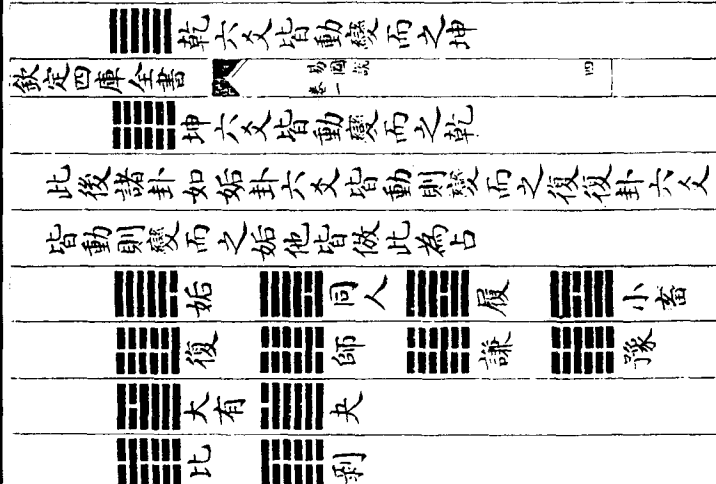 乾六爻皆動變而之坤
欽定四庫全書
易圖說
卷一
四
坤六爻皆動變而之乾
此後諸卦如姤卦六爻皆動則變而之復復卦六爻
皆動則變而之姤他皆倣此為占
姤 同人 履 小畜
復 師 謙 豫
大有 夬
比 剝